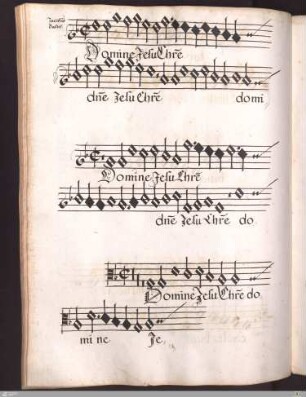 Domine Jesu Chr̄e
dn̄e Jesu Chr̄e domi
Domine Jesu Chr̄e
dn̄e Jesu Chr̄e do
Domine Jesu Chr̄e do
mi ne Je